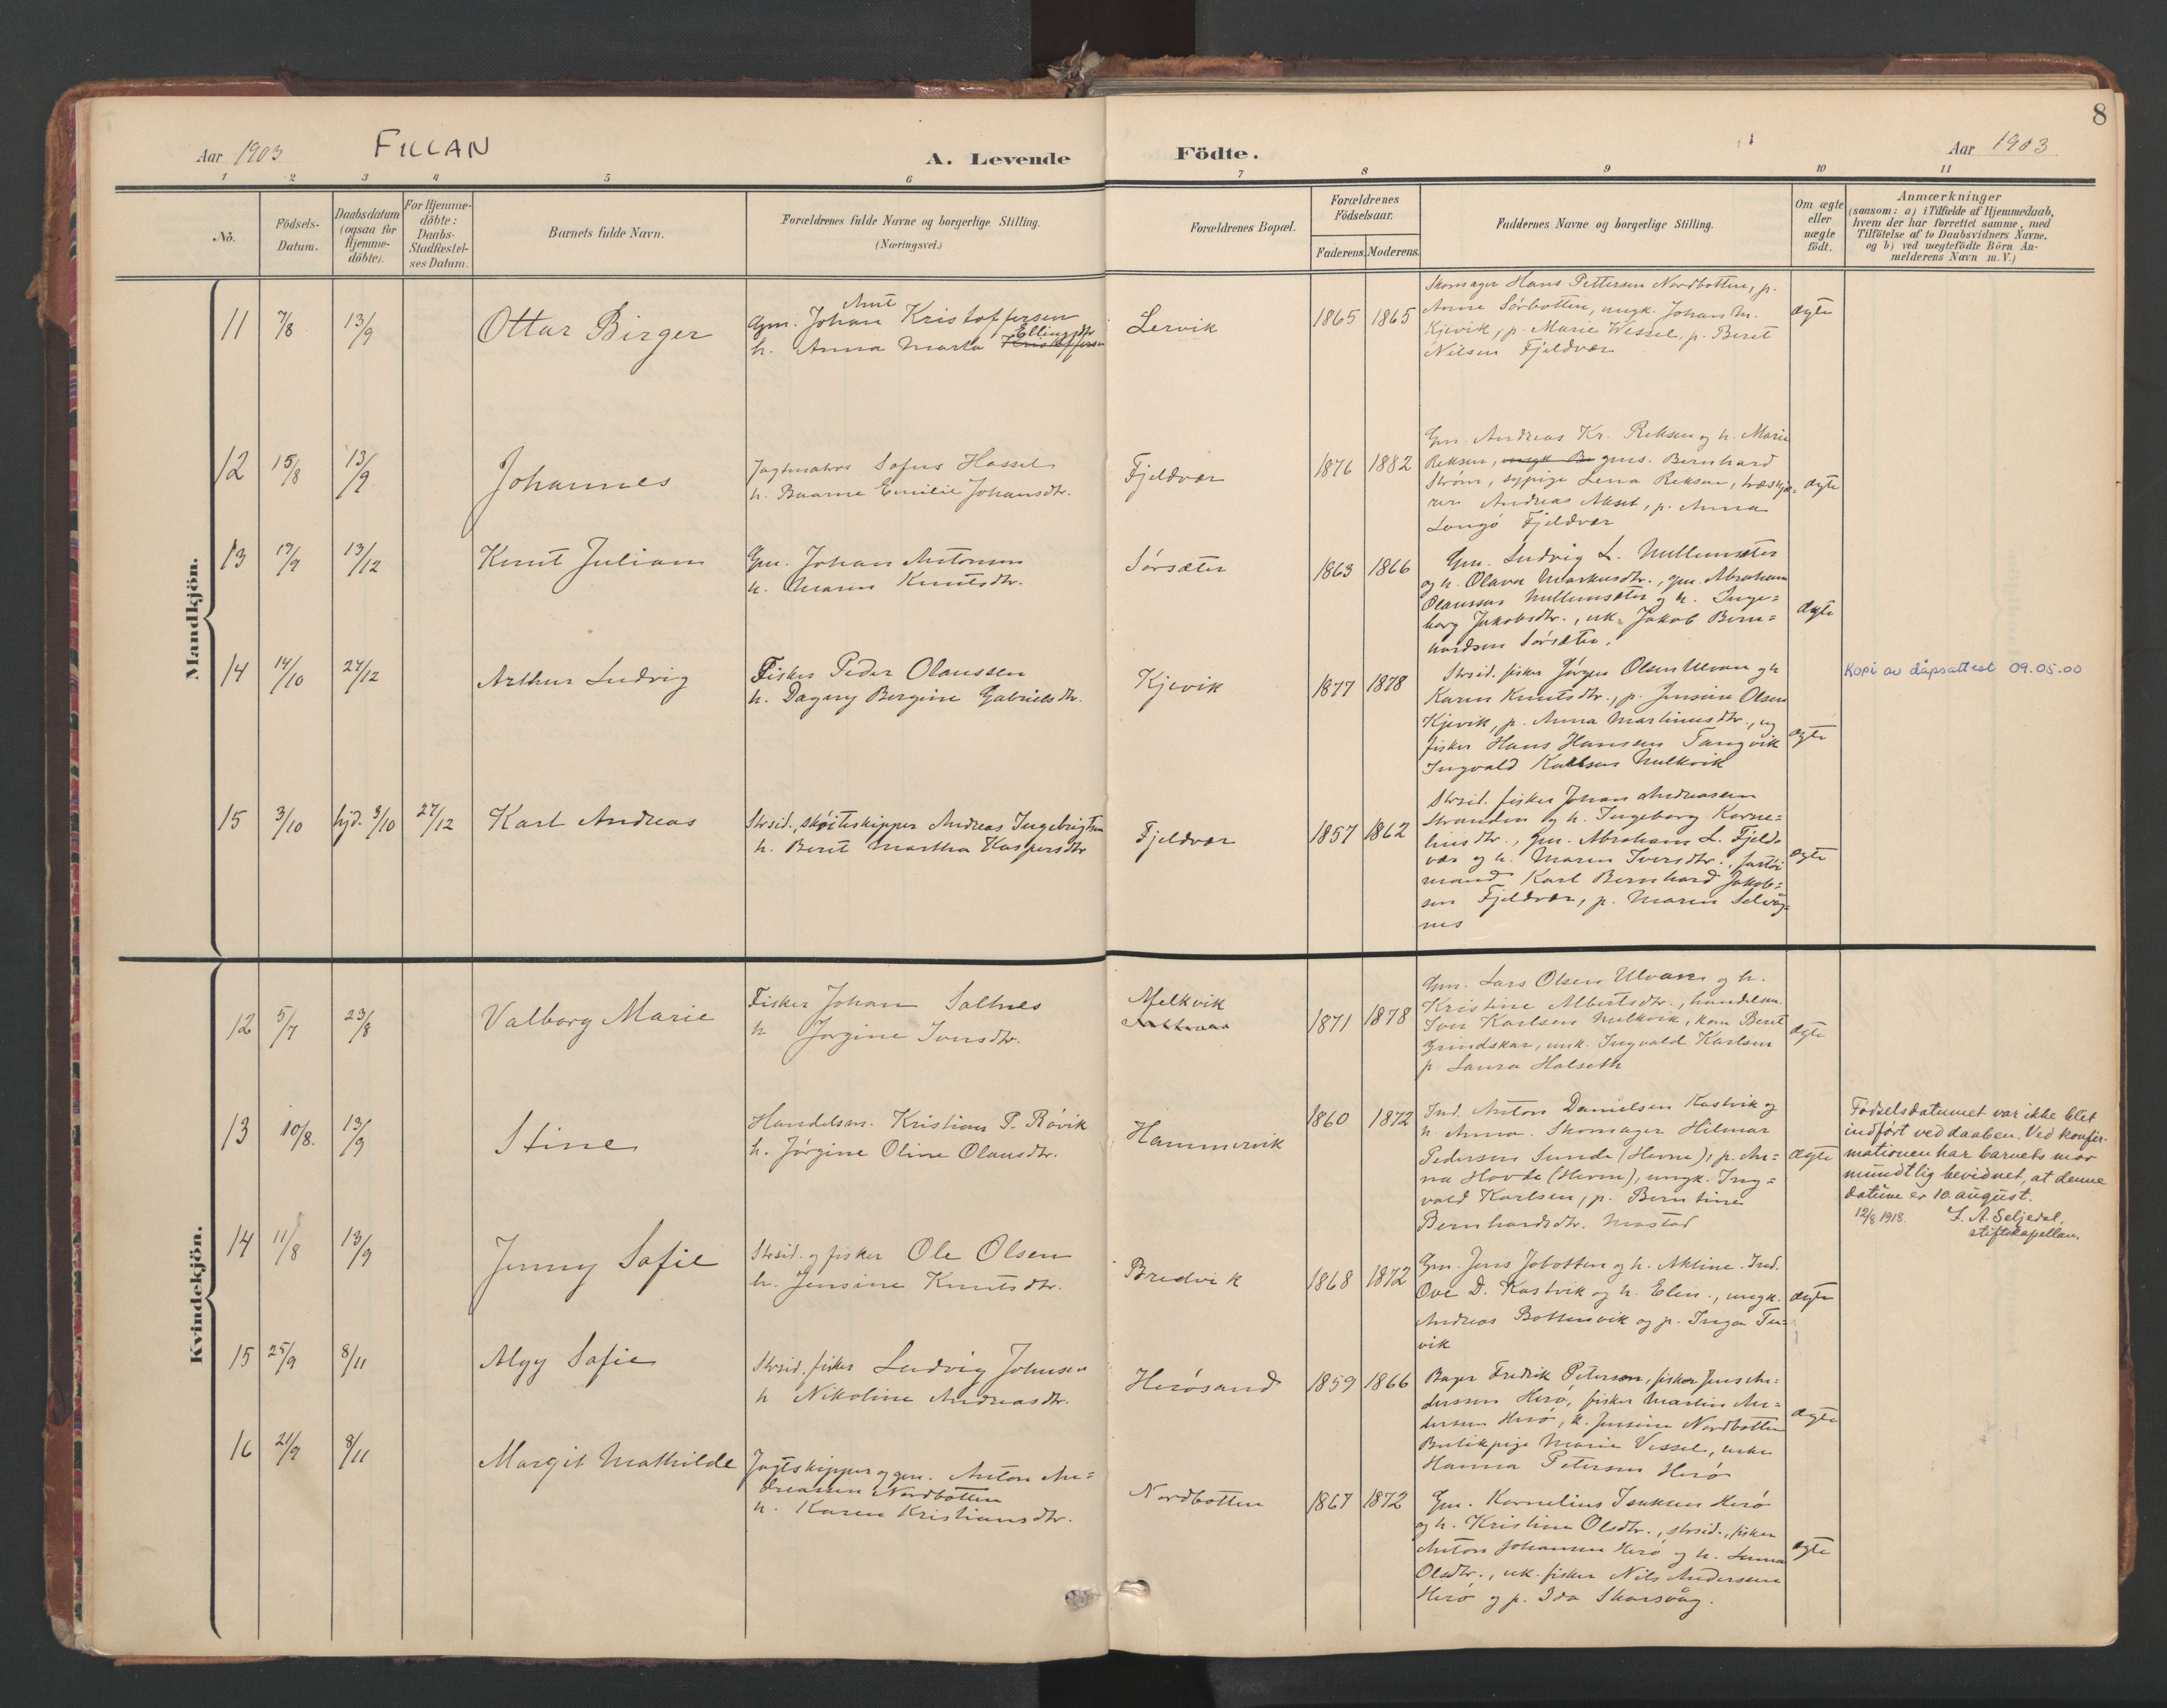 8
Aar 1903
FILLAN
A. Levende
Födte.
Aar 1903
1 2 3 4 5 6 7 8 9 10 11
Nö.
Födsels-
Datum.
Daabsdatum
(ogsaa for
Hjemme-
döbte).
For Hjemme-
döbte:
Daabs-
Stadfæstel-
ses Datum.
Barnets fulde Navn.
Forældrenes fulde Navne og borgerlige Stilling.
(Næringsvei.)
Forældrenes Bopæl.
Forældrenes
Födselsaar.
Faderens. Moderens.
Faddernes Navne og borgerlige Stilling.
Om ægte
eller
uægte
födt.
Anmærkninger
(saasom: a) i Tilfælde af Hjemmedaab,
hvem der har forrettet samme, med
Tilföielse af to Daabsvidners Navne,
og b) ved uegtefödte Börn An-
melderens Navn m. V.)
Mandkjön.
11 7/8 13/9
Ottar Birger
Arnt
Gm. Johan Kristoffersen
Ellingsdtr
h. Anna Marta Kristoffersen
Lervik
1865 1865
Skomager Hans Pettersen Nordbotten, p.
Anna Sørbotten, ungk. Johan M.
Kjevik, p. Marie Wessel, p. Beret
Nilsen Fjeldvær
ægte
12 15/8 13/9
Johannes
Sofus Hassel
h. Emilie Johansdtr.
Fjeldvær
1876 1882
Gm. Andreas Kr. Reksen og h. Marie
Reksen, gms. Bernhard
Strøm, sypige Lena Reksen, træskjæ=
rer Andreas Akset, p. Anna
Langø Fjeldvær
ægte
13 19/9 13/12
Knut Julian
Gm. Johan Antonsen
h. Maren Knutsdtr.
Sørsæter
1863 1866
Gm. Ludvig L. Mellemsæter
og h. Olava Markusdtr., gm. Abraham
Olaussen Mellemsæter og h. Inge=
borg Jakobsdtr., uk. Jakob Bern=
hardsen Sørsæter.
ægte
14 14/10 27/12
Arthur Ludvig
Fisker Peder Olaussen
h. Dagny Bergine Gabrielsdtr.
Kjevik
1877 1878
Strsid. fisker Jørgen Olsen Ulvan og h
Karen Knutsdtr., p. Jensine Olsen
Kjevik, p. Anna Martinusdtr., ug
fisker Hans Hansen Tangvik
Ingvald Karlsen Melkvik
ægte
Kopi av dåpsattest 09.05.00
15 3/10 hjd. 3/10 27/12
Karl Andreas
Strsid., skøiteskipper Andreas Ingebrigtsen
h. Beret Martha Kaspersdtr
Fjeldvær
1857 1862
Strsid. fisker Johan Andreasen
Stranden og h. Ingeborg Korne=
liusdtr., gm. Abraham L. Fjeld=
vær og h. Maren Iversdtr.,
mand Karl Bernhard Jakob=
sen Fjeldvær, p. Maren Selvåg=
nes
ægte
Kvindekjön.
12 5/7 23/8
Valborg Marie
Fisker Johan Saltnes
h Jørgine Iversdtr.
Melkvik
Saltnes
1871 1878
Gm. Lars Olsen Ulvan og h.
Kristine Albertsdtr., handelsm.
Iver Karlsen Melkvik, kone Beret
Grindskar, unk. Ingvald Karlsen
p. Laura Halseth
ægte
13 10/8. 13/9
Stine
Handelsm. Kristian P. Røvik
h. Jørgine Oline Olausdtr.
Hammervik
1860 1872
Ind. Anton Danielsen Kastvik og
h. Anna. Skomager Hilmar
Pedersen Sunde (Hevne), p. An=
na Hovde (Hevne), ungk. Ing=
vald Karlsen, p. Berntine
Bernhardsdtr. Mastad
ægte
Fødselsdatumet var ikke blet
indført ved daaben. Ved konfir-
mationen har barnets mor
mundtlig bevidnet, at denne
datum er 10. august.
12/8 1918. I. A. Seljedal,
stiftskapellan.
14 11/8 13/9
Jenny Sofie
Strsid. og fisker Ole Olsen
h. Jensine Knutsdtr.
Bredvik
1868 1872
Gm. Jens Jøbotten og h. Akline. Ind.
Ove D. Kastvik og h. Elen., ungk.
Andreas Bottenvik og p. Inga Tu=
vik
ægte
15 25/9 8/11
Algy Sofie
Strsid. fisker Ludvig Johnsen
h Nikoline Andreasdtr.
Herøsund
1859 1866
Bager Fredrik Petersen, fisker Jens An=
dersen Herø, fisker Martin An=
dersen Herø, k. Jensine Nordbotten
Butikpige Marie Vessel, enke
Hanna Petersen Herø
ægte
16 21/9 8/11
Margit Mathilde
Jagtskipper og gm. Anton An=
dreasen Nordbotten
h. Karen Kristiansdtr.
Nordbotten
1867 1872
Gm. Kornelius Isaksen Herø
og h. Kristine Olsdtr., strsid., fisker
Anton Johansen Herø og h. Anna
Olsdtr., uk. fisker Nils Andersen
Herø og p. Ida Skarsvåg.
ægte